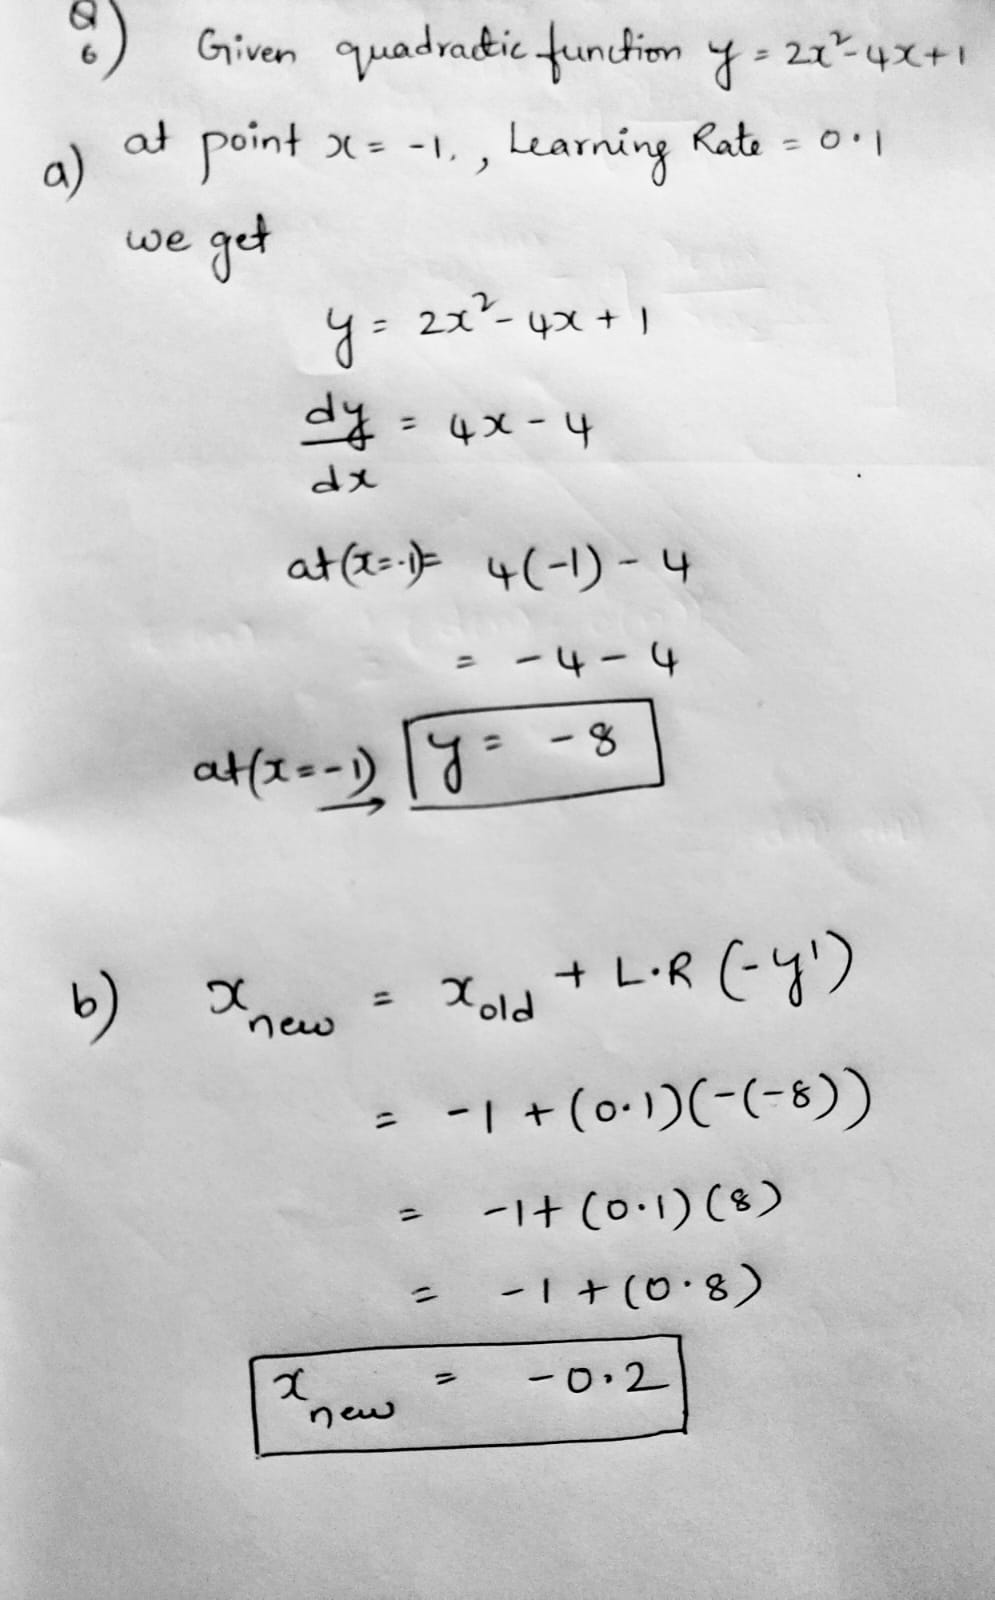 Q6) Given quadractic function y = 2x²-4x+1
a) at point x = -1, , Learning Rate = 0.1
we get
y = 2x²- 4x + 1
dy/dx = 4x - 4
at(x=-1)= 4(-1) - 4
= -4 - 4
at(x=-1) y = -8
b) x_new = x_old + L.R (-y')
= -1 + (0.1)(-(-8))
= -1+ (0.1) (8)
= -1 + (0.8)
x_new = -0.2